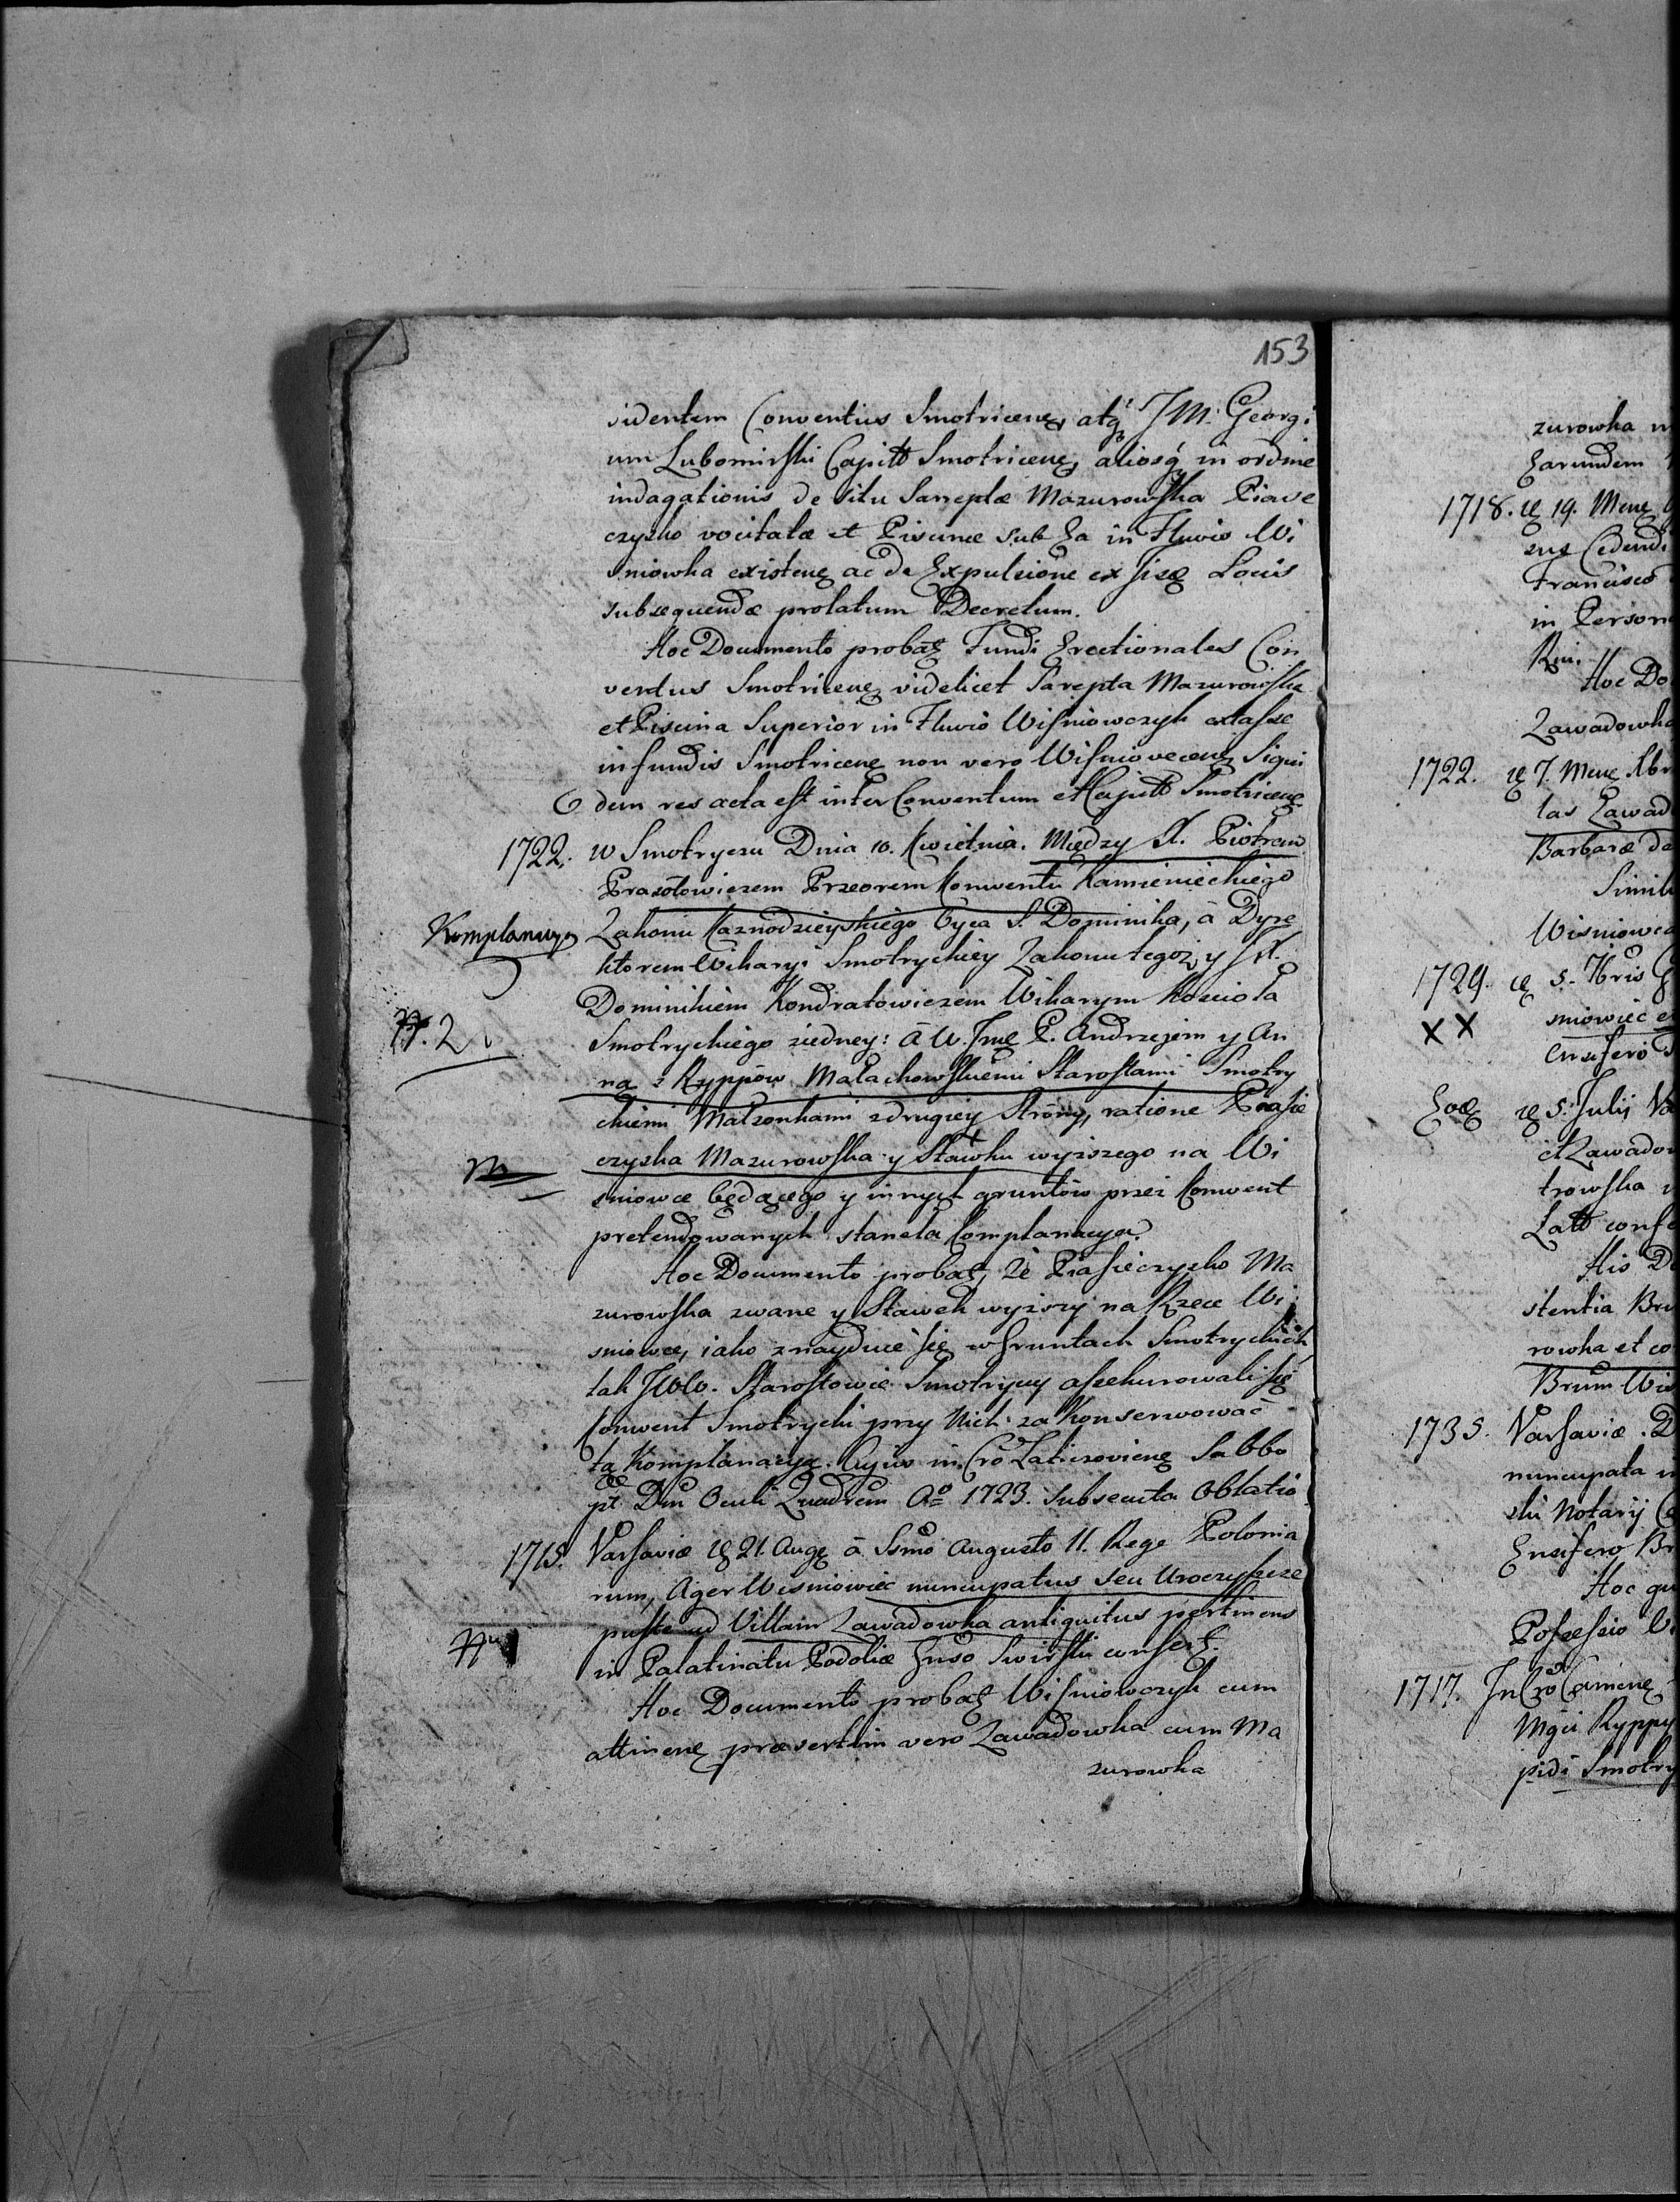 153
sidentem Conventus Smotricenę, atq́ꝫ J M. Georgi
um Lubomirski Capitt Smotricenę, aliosq́ꝫ in ordine
indagationis de situ Sarreptæ Mazurowska Piave
czysko vocitatæ et Piscinæ sub Ea in Fluvio Wi
sniowka existenę ac de Expulsione ex hisę Locis
subsequendæ prolatum Decretum.
Hoc Documento probatę Fundi Erectionales Con
ventus Smotricenę videlicet Sarepta Mazurowska
et Piscina Superior in Fluvio Wisniowczyk extasse
in fundis Smotricenę non vero Wisniovecenę Siqui
dem res acta est inter Conventum et Capitt Smotricenę
1722. w Smotryczu Dnia 10. Kwietnia. Między X. Piotrem
Prazołowiczem Przeorem Konwentu Kamienieckiego
Komplanacya Zakonu Kaznodzieyskiego Oyca S. Dominika, á Dyre
ktorem Wikaryi Smotryckiey Zakonu tegoż, y X.
Dominikiem Kondratowiczem Wikarym Kościoła
N. 2 Smotryckiego ziedney: á W. Jmę P. Andrzejem y An
ną z Ryppów Małachowskiemi Starostami Smotry
ckiemi Małżonkami zdrugiey Strony, ratione Piasie
czyska Mazurowska y Stawku wyższego na Wi
sniowce będącego y innych gruntów przez Konwent
pretendowanych staneła Komplanacya.
Hoc Documento probatę, że Piasieczysko Ma
zurowska zwane y Stawek wyższy na Rzece Wi
sniowce, iako znayduie się w Gruntach Smotryckich,
tak JWW. Starostowie Smotryccy assekurowali się
Konwent Smotrycki przy Nich zakonserwować
tą Komplanacyą. Cujus in Cro Laticzovienę Sabbo
pt Dm Oculi Quadrem Ao 1723. subsecuta Oblatio.
1718. Varsaviæ ię 21. Augę á Ssmo Augusto II. Rege Polonia
rum, Ager Wisniowiec nuncupatus seu Uroczyszcze
puste ad Villam Zawadowka antiquitus pertinens
in Palatinatu Podoliæ Gnso Swirski consertę.
Hoc Documento probatę Wisniowczyk cum
attinenę præsertim vero Zawadowka cum Ma
zurowka
zurowka
Earundem
1718. ię 19. Menę
Francisco
in Person
Rmi.
Hoc Do
Zawadowka
1722. ię 7. Menę Xbr
tas Zawad
Barbaræ de
Simili
Wisniowca
1729. ię 5. 7bris
XX sniowiec e
Ensifero
Eoę ię 5. Julij Va
et Zawadow
trowska
Latt confe
His Do
stentia
rowka et co
Brum Wi
1735. Varsaviæ. D
nuncupata
ski Notarij
Ensifero Br
Hoc qu
Possessio
1717. In Cro Camenę
Mgci Ryppy
pidi Smotry